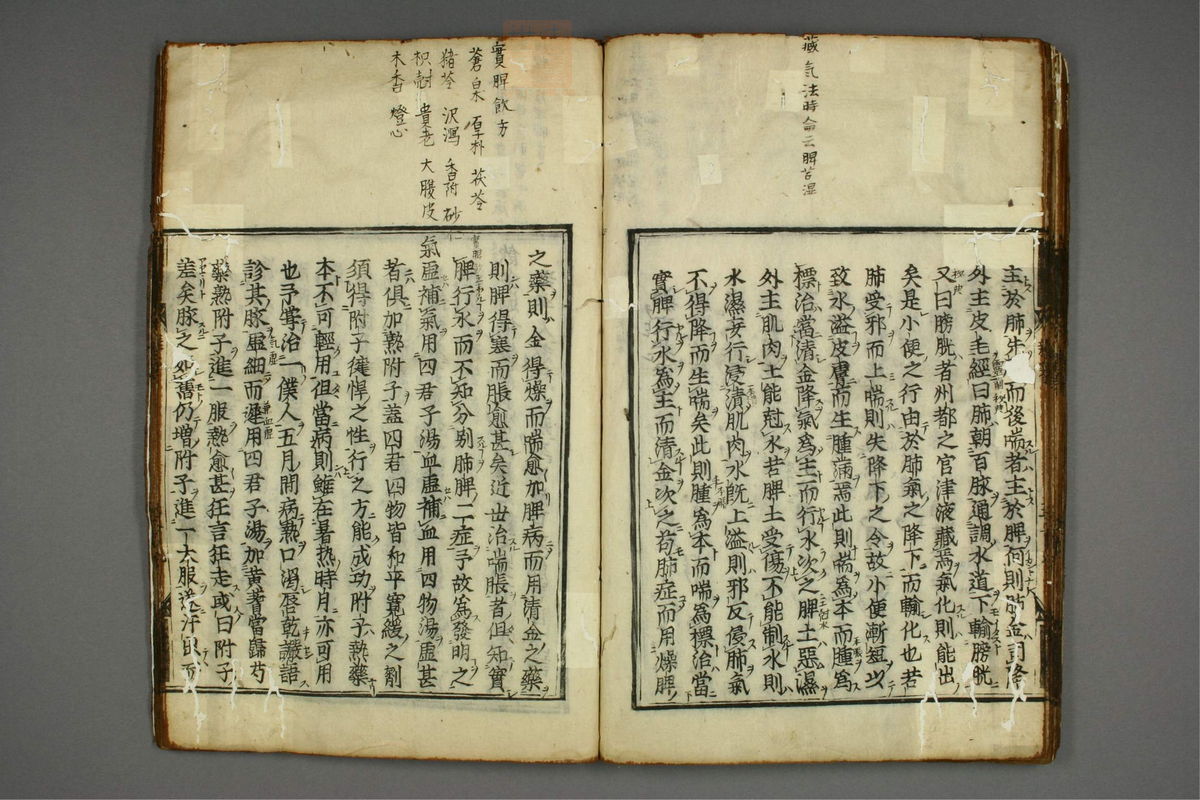 藏氣法時侖云脾苦湿
主於肺先而後喘者主於脾何則肺金司降
外主皮毛經曰肺朝百脉通調水道下輸膀胱
又曰膀胱者州都之官津液藏焉氣化則能出
矣是小便之行由於肺氣之降下而輸化也若
肺受邪而上喘則失降下之令故小便漸短以
致水溢皮膚而生腫滿焉此則喘為本而腫為
標治當清金降氣為主而行水次之脾土惡濕
外主肌肉土能尅水若脾土受傷不能制水則
水濕妄行浸漬肌肉水旣上溢則邪反侵肺氣
不得降而生喘矣此則腫為本而喘為標治當
實脾行水為主而清金次之苟肺症而用燥脾
實脾飲方
蒼 白朮 厚朴 茯苓
猪苓 沢瀉 香附 砂仁
枳壳 大腹皮
木香 燈心
之藥則金得燥而喘愈加脾病而用清金之藥
則脾得寒而脹愈甚矣近世治喘脹者但知實
脾行水而不知分别肺脾二症予故為發明之
氣虚補氣用四君子湯血虚補血用四物湯虚甚
者俱加熟附子蓋四君四物皆和平寛緩之剤
須得附子健悍之性行之方能成功附子熱藥
本不可輕用但當病則雖在暑熱時月亦可用
也予嘗治一僕人五月間病熱口渇唇乾讝語
診其脉虚細而遲用四君子湯加黄耆當歸芍
藥熟附子進一服熱愈甚狂言狂走或曰附子
差矣脉之如舊仍增附子進一大服遂汗出而